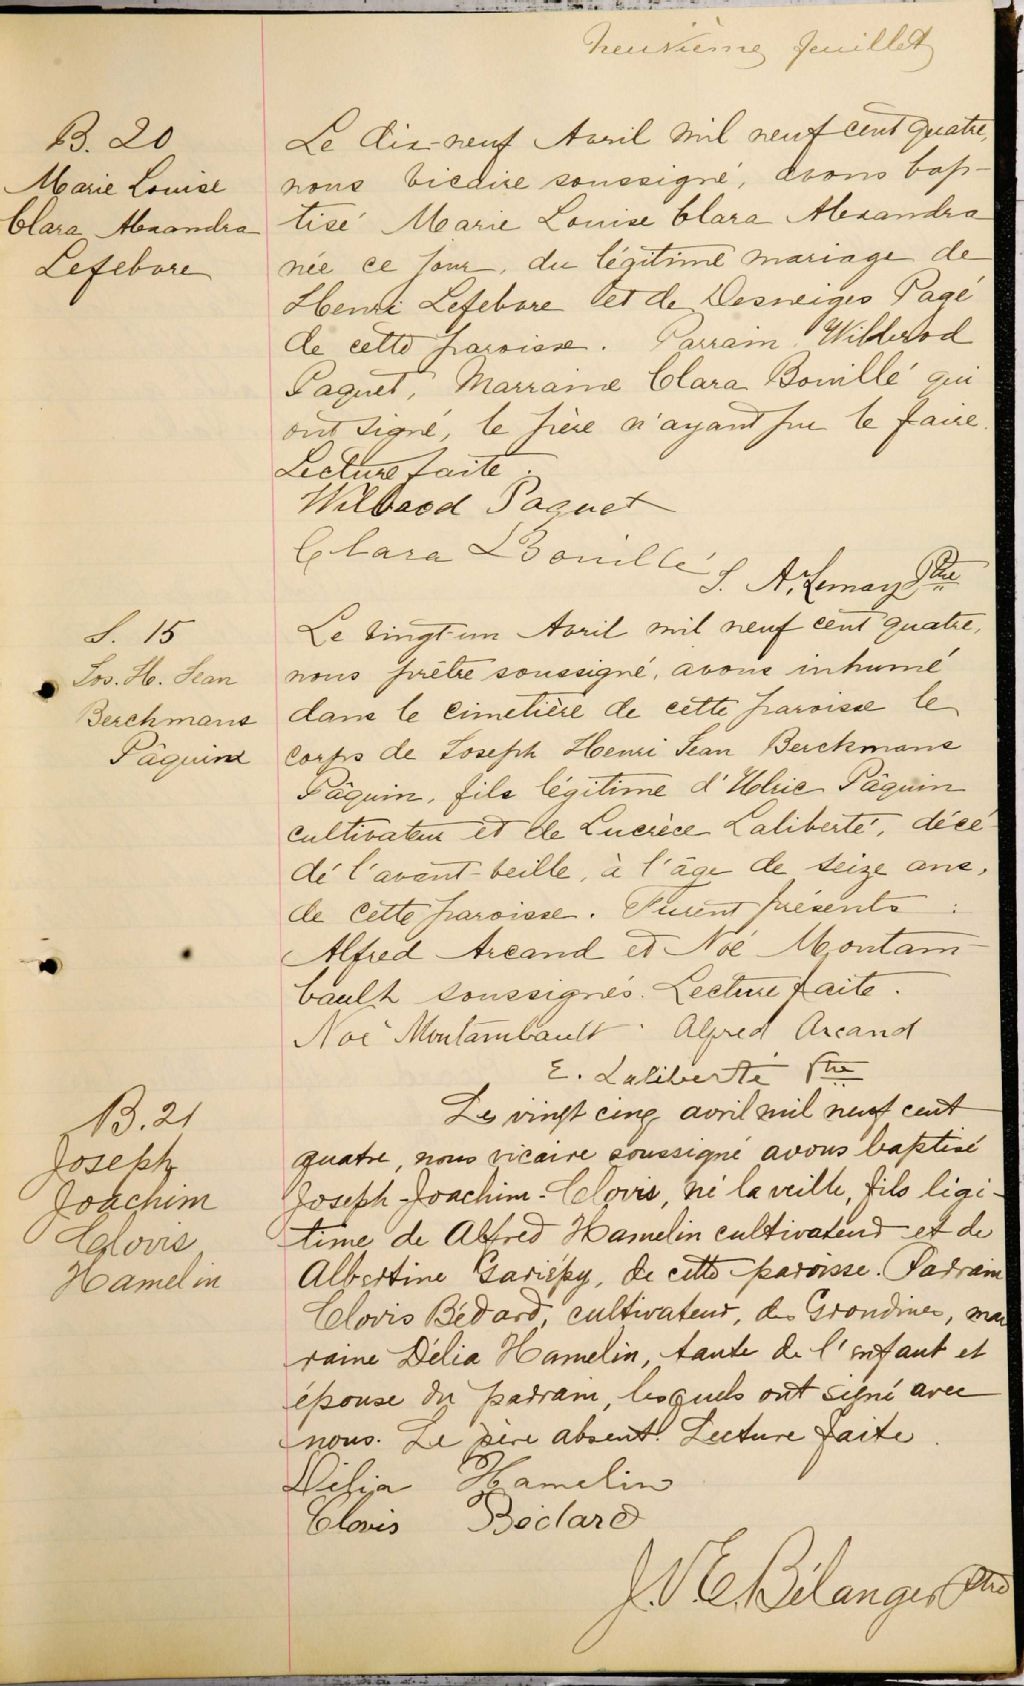 neuvième feuillet
B. 20
Marie Louise
Clara Alexandra
Lefebvre
Le dix-neuf Avril mil neuf cent quatre,
nous vicaire soussigné, avons bap-
tisé Marie Louise Clara Alexandra
née ce jour, du légitime mariage de
Henri Lefebvre et de Desneiges Pagé
de cette paroisse. Parrain Wilbrod
Paquet, Marraine Clara Bouillé qui
ont signé, le père n'ayant pu le faire.
Lecture faite.
Wilbrod Paquet
Clara Bouillé
S. A. Lemay Ptre
S. 15
Jos. H. Jean
Berchmans
Pâquin
Le vingt-un Avril mil neuf cent quatre,
nous prêtre soussigné, avons inhumé
dans le cimetière de cette paroisse le
corps de Joseph Henri Jean Berchmans
Pâquin, fils légitime d'Ulric Pâquin
cultivateur et de Lucrèce Laliberté, décé
dé l'avant-veille, à l'âge de seize ans,
de cette paroisse. Furent présents :
Alfred Arcand et Noé Montam-
bault soussignés. Lecture faite.
Noé Montambault Alfred Arcand
E. Laliberté Ptre
B. 21
Joseph
Joachim
Clovis
Hamelin
Le vingt cinq avril mil neuf cent
quatre, nous vicaire soussigné avons baptisé
Joseph-Joachim-Clovis, né la veille, fils légi-
time de Alfred Hamelin cultivateur et de
Albertine Gariépy, de cette paroisse. Parrain
Clovis Bédard, cultivateur, des Grondines, mar
raine Délia Hamelin, tante de l'enfant et
épouse du parrain, lesquels ont signé avec
nous. Le père absent. Lecture faite.
Délia Hamelin
Clovis Bédard
J. V. E. Bélanger Ptre